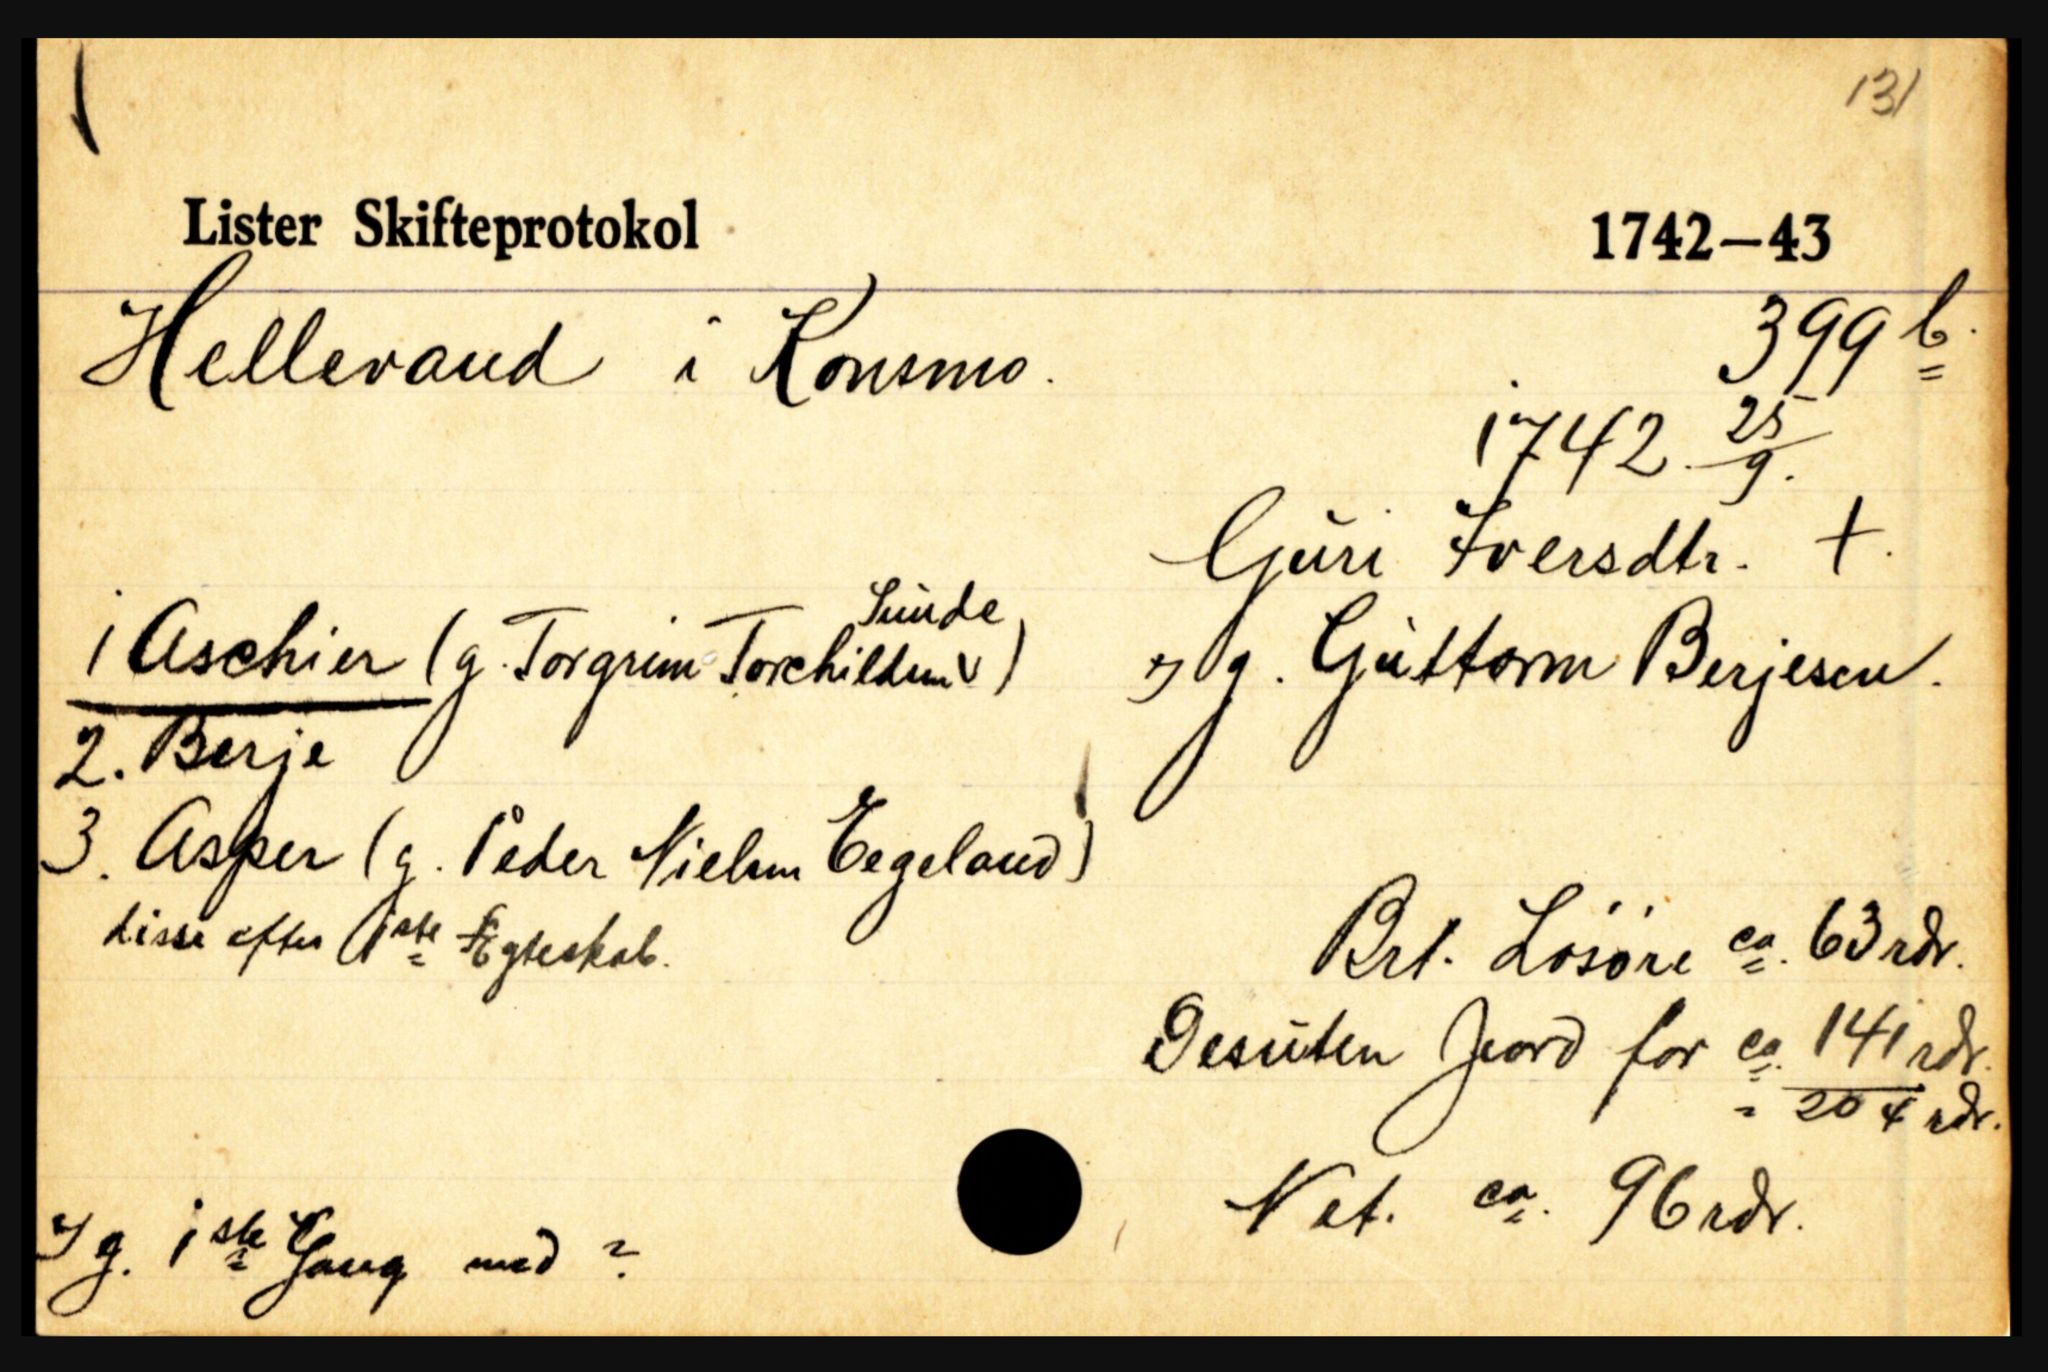 131
Lister Skifteprotokol 1742–43
Hellevand i Konsmo. 399 b.
1742. 25/9.
Guri Iversdtr. +.
Sunde
1 Aschier (g. Torgrim Torchildsen)
g. Guttorm Berjesen.
2. Berje
3. Asper (g. Peder Nielsen Eegeland)
disse efter 1ste Egteskab.
Brt. Løsøre ca. 63 rdr.
Desuten Jord for ca. 141 rdr.
= 204 rdr.
Net. ca. 96 rdr.
g. 1ste Gang med ?